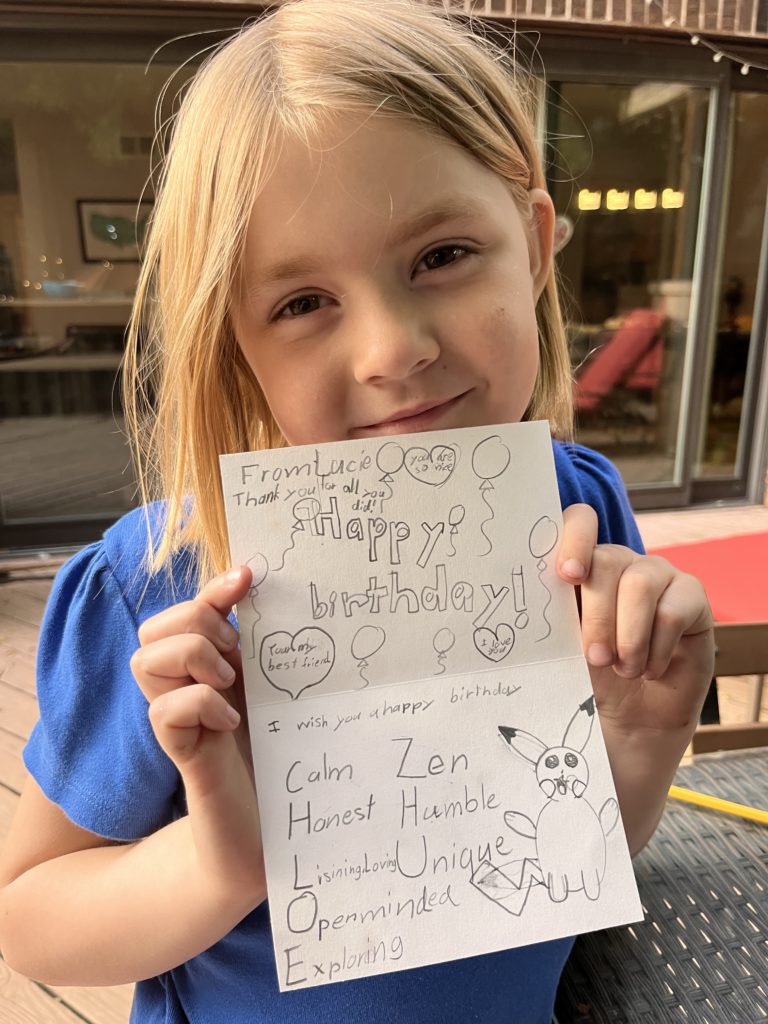 From Lucie
Thank you for all you did!
you are so nice
Happy
birthday!
Your my best friend
I love you
I wish you a happy birthday
Calm Zen
Honest Humble
Lisining, Loving Unique
Openminded
Exploring